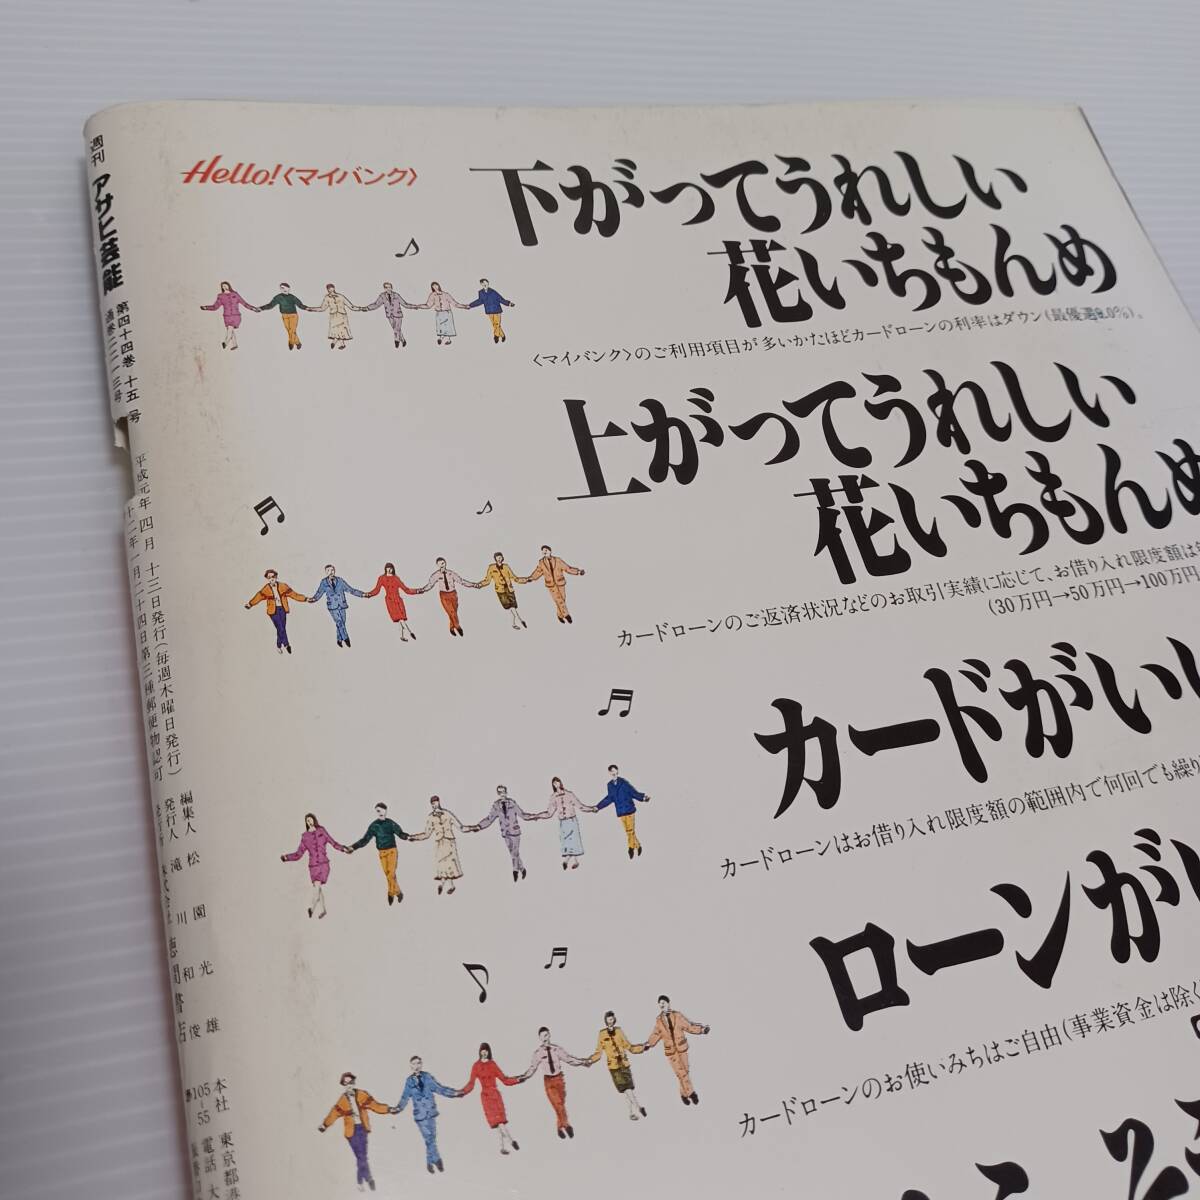 Hello!〈マイバンク〉
下がってうれしい
花いちもんめ
〈マイバンク〉のご利用項目が多いかたほどカードローンの利率はダウン(最優遇9.0%)。
上がってうれしい
花いちもんめ
カードローンのご返済状況などのお取引実績に応じて、お借り入れ限度額は
(30万円→50万円→100万円
カードがいい
カードローンはお借り入れ限度額の範囲内で何回でも繰り
ローンが
カードローンのお使いみちはご自由(事業資金は除く
週刊 アサヒ芸能 第四十四巻 十五号
通巻二二一三号
平成元年四月十三日発行(毎週木曜日発行)
十二年一月二十四日第三種郵便物認可
編集人 松園光雄
発行人 滝川和俊
株式会社 徳間書店
本社 東京都港
105-55
電話